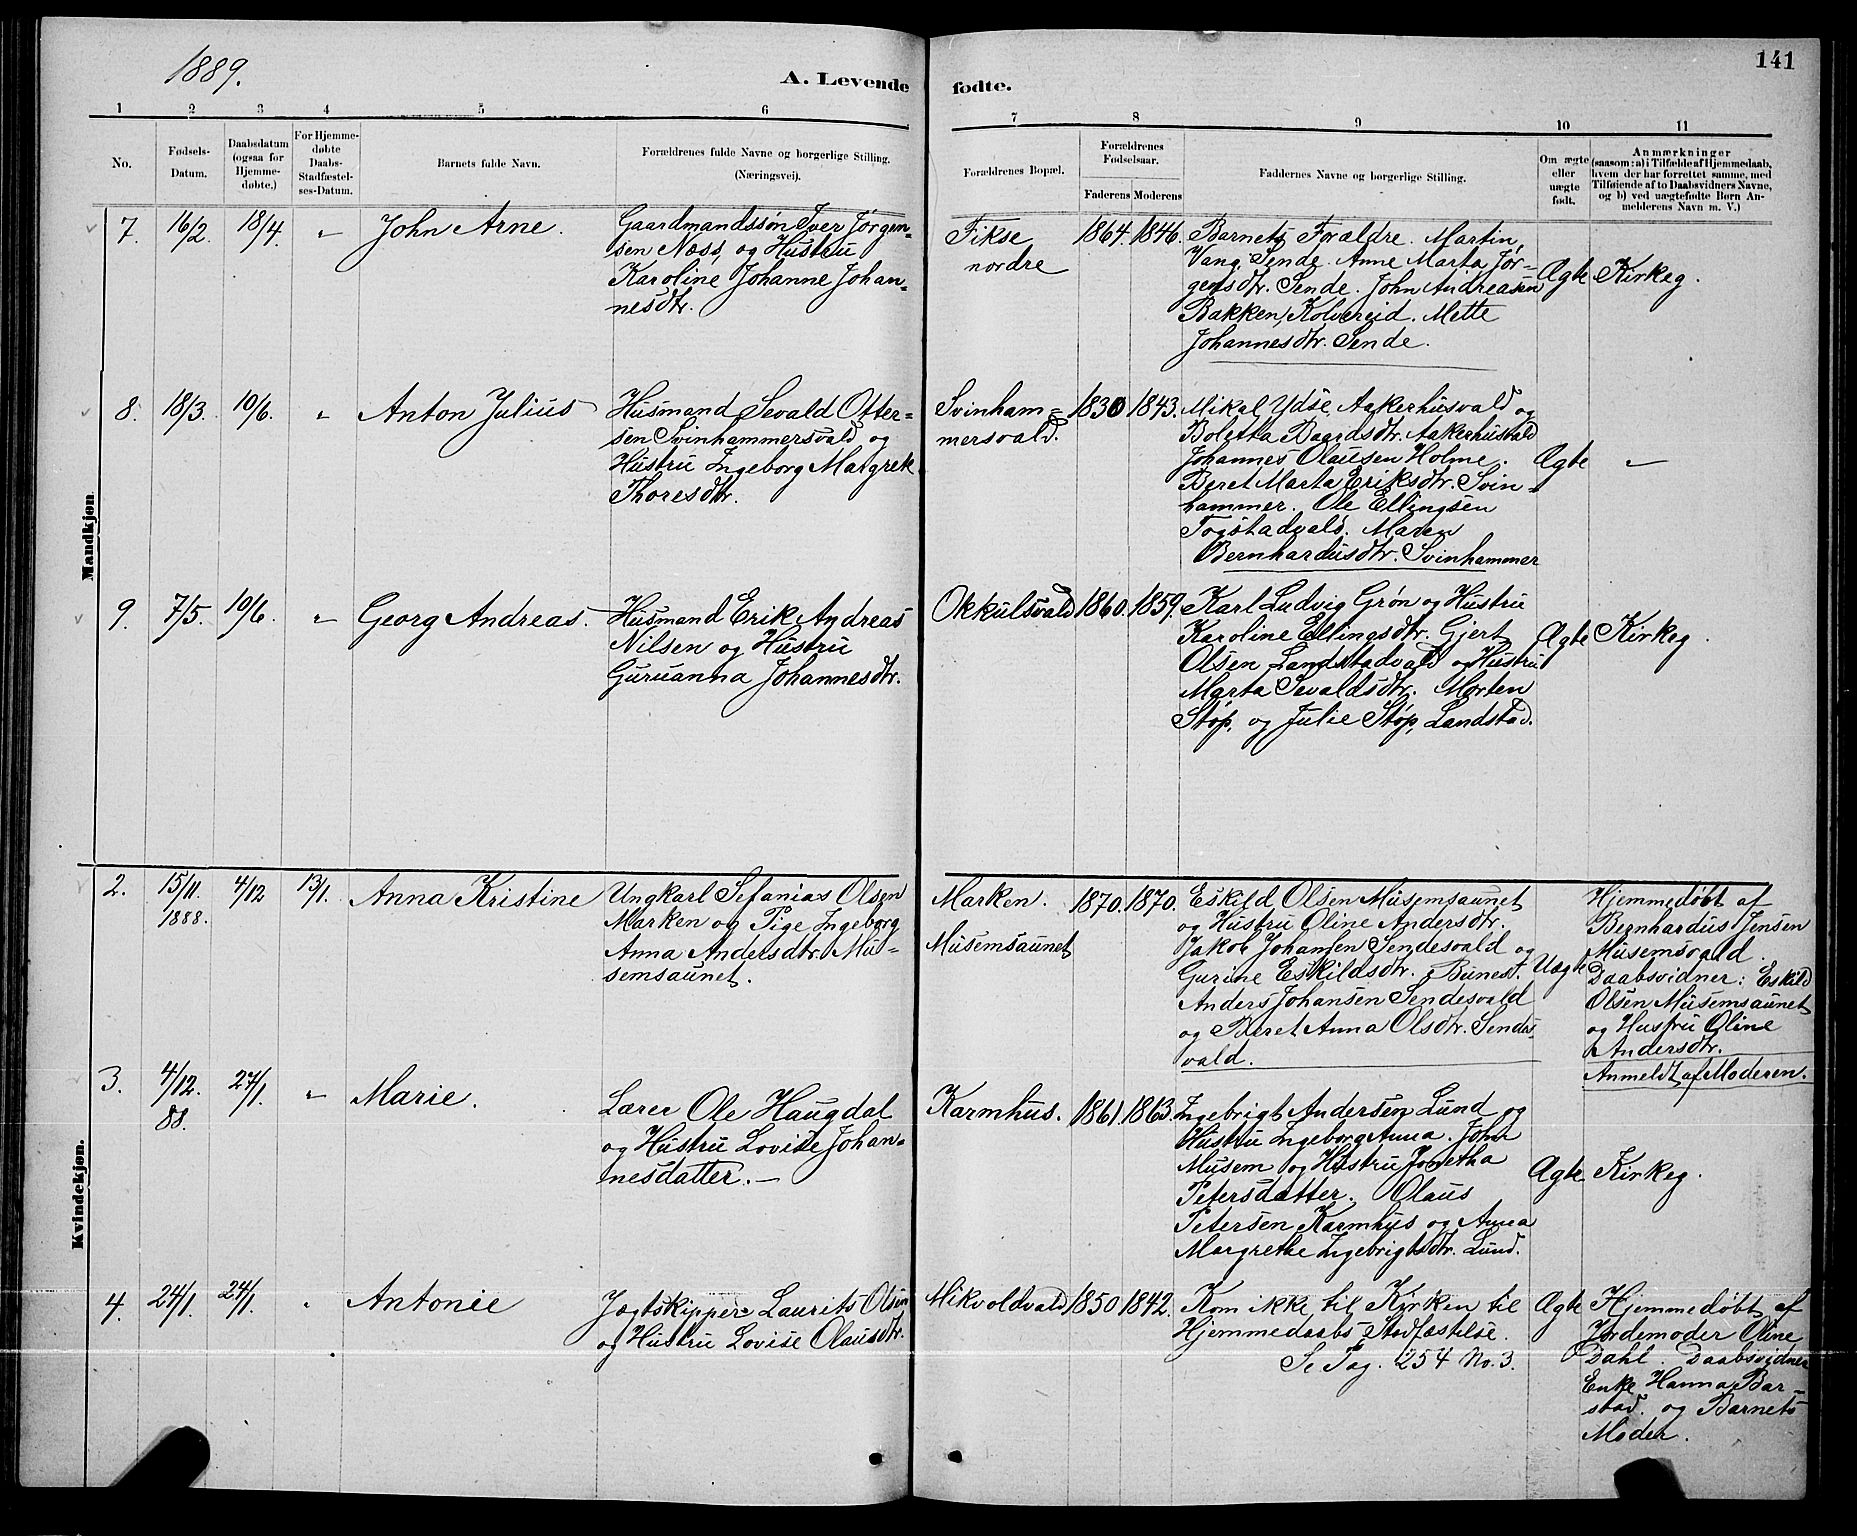 1889.
A. Levende
fødte.
141
1 2 3 4 5 6 7 8 9 10 11
No.
Fødsels-
Datum.
Daabsdatum
(ogsaa for
Hjemme-
døbte.)
For Hjemme-
døbte
Daabs-
Stadfæstel-
ses-Datum.
Barnets fulde Navn.
Forældrenes fulde Navne og borgerlige Stilling.
(Næringsvei).
Forældrenes Bopæl.
Forældrenes
Fødselsaar.
Faderens Moderens
Faddernes Navne og borgerlige Stilling.
Om ægte
eller
uægte
født.
Anmærkninger
(saasom: a) i Tilfælde af Hjemmedaab,
hvem der har forrettet samme, med
Tilføiende af to Daabsvidners Navne,
og b) ved uægtefødte Børn An-
melderens Navn m. V.)
Mandkjøn.
7. 16/2. 18/4. " John Arne.
Gaardmandssøn Iver Jørgen-
sen Næss, og Hustru
Karoline Johanne Johan-
nesdtr.
Fikse
nordre
1864. 1846.
Barnets Forældre. Martin
Vang. Sende. Anne Marta Jør-
gensdtr. Sende. John Andreasen
Bakken, Kolvereid. Mette
Johannesdtr. Sende.
Ægte
Kirkeg.
8. 18/3. 10/6. " Anton Julius
Husmand Sevald Otter-
sen Svinhammersvald og
Hustru Ingeborg Margrete
Thoresdtr.
Svinham-
mersvald.
1830 1843.
Mikal Ydse Aakerhusvald og
Boletta Baardsdtr. Aakerhusvald
Johannes Olausen Holme.
Beret Marta Eriksdtr. Svin-
hammer. Ole Ellingsen
Togstadvald. Maren
Bernhardusdtr. Svinhammer
Ægte
"
9. 7/5. 10/6. " Georg Andreas.
Husmand Erik Andreas
Nilsen og Hustru
Guruanna Johannesdtr.
Okkulsvald
1860. 1859.
Karl Ludvig Grøn og Hustru
Karoline Ellingsdtr. Gjert
Olsen Landstadvald og Hustru
Marta Sevaldsdtr. Morten
Støp. og Julie Støp, Landstad.
Ægte
Kirkeg.
Kvindekjøn.
2. 15/11. 1888. 4/12 13/1. Anna Kristine
Ungkarl Sefanias Olsen
Marken og Pige Ingeborg
Anna Andersdtr. Mu-
semsaunet.
Marken.
Musemsaunet
1870. 1870.
Eskild Olsen Musemsaunet
og Hustru Oline Andersdtr.
Jakob Johansen Sendesvald og
Gurine Eskildsdtr. Bunest.
Anders Johansen Sendesvald
og Beret Anna Olsdtr. Sendes-
vald.
Uægte
Hjemmedøbt af
Bernhardus Jensen
Musemsvald.
Daabsvidner: Eskild
Olsen Musemsaunet
og Hustru Oline
Andersdtr.
Anmeldt af Moderen.
3. 4/12. 88. 27/1. " Marie.
Lærer Ole Haugdal
og Hustru Lovise Johan-
nesdatter. —
Karmhus.
1861. 1863.
Ingebrigt Andersen Lund og
Hustru Ingeborg Anna. John
Musem og Hustru Jonetha
Petersdatter. Olaus
Petersen Karmhus og Anna
Margrethe Ingebrigtsdtr. Lund.
Ægte
Kirkeg.
4. 24/1. 24/1. " Antonie
Jægtskipper Laurits Olsen
og Hustru Lovise Olausdtr.
Mikvoldvald
1850 1842.
Kom ikke til Kirken til
Hjemmedaabs Stadfæstelse.
Se Pag. 254 No. 3.
Ægte
Hjemmedøbt af
Jordemoder Oline
Dahl. Daabsvidner
Enke Hanna Bar-
stad. og Barnets
Moder.